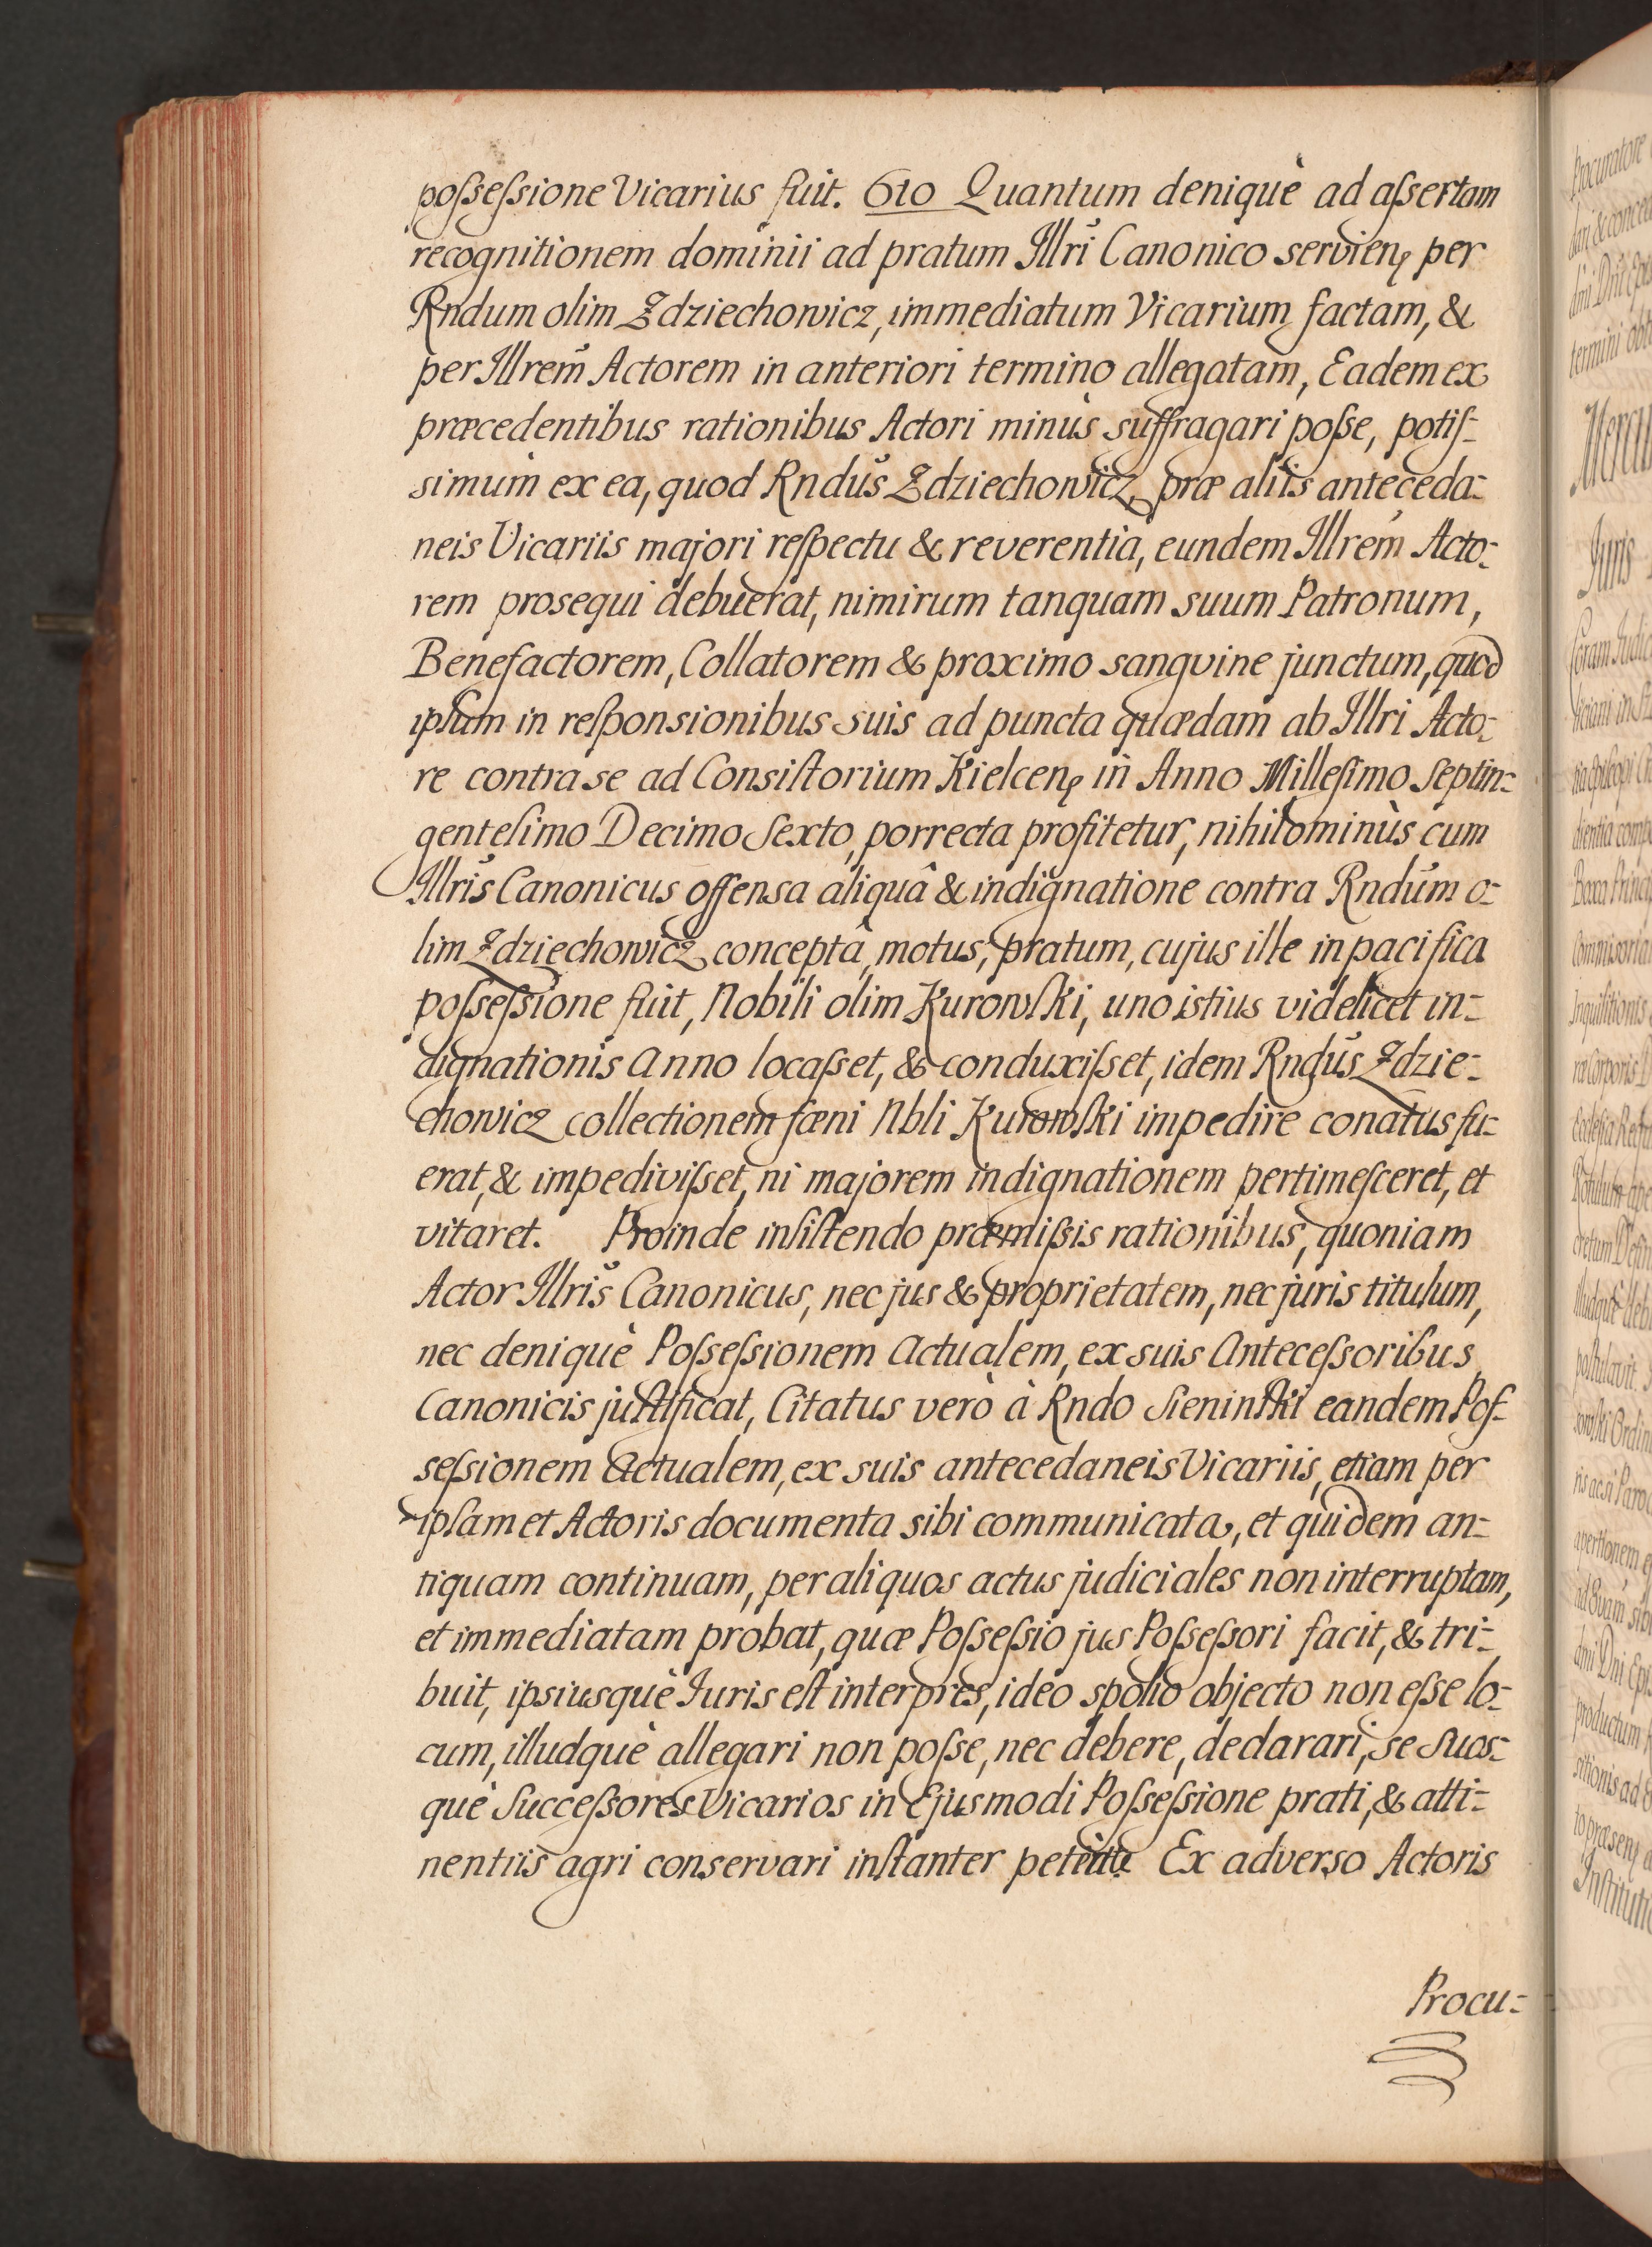 possessione Vicarius fuit. 610 Quantum deniquè ad assertam
recognitionem dominii ad pratum Illri Canonico servien. per
Rndum olim Zdziechowicz, immediatum Vicarium factam, &
per Illrem Actorem in anteriori termino allegatam, Eadem ex
præcedentibus rationibus Actori minùs suffragari posse, potis-
simùm ex ea, quod Rndus Zdziechowicz, præ aliis anteceda-
neis Vicariis majori respectu & reverentia, eundem Illrem Acto-
rem prosequi debuerat, nimirum tanquam suum Patronum,
Benefactorem, Collatorem & proximo sangvine junctum, quod
ipsum in responsionibus suis ad puncta quædam ab Illri Acto-
re contra se ad Consistorium Kielcen. in Anno Millesimo Septin-
gentesimo Decimo Sexto, porrecta profitetur, nihilominùs cum
Illris Canonicus offensa aliquâ & indignatione contra Rndum o-
lim Zdziechowicz conceptâ, motus, pratum, cujus ille in pacifica
possessione fuit, Nobili olim Kurowski, uno istius videlicet in-
dignationis Anno locasset, & conduxisset, idem Rndus Zdzie-
chowicz collectionem fœni Nbli Kurowski impedire conatus fu-
erat, & impedivisset, ni majorem indignationem pertimesceret, et
vitaret. Proinde insistendo præmissis rationibus, quoniam
Actor Illris Canonicus, nec jus & proprietatem, nec juris titulum,
nec deniquè Possessionem Actualem, ex suis Antecessoribus
Canonicis justificat, Citatus verò à Rndo Sieninski eandem Pos-
sessionem Actualem, ex suis antecedaneis Vicariis, etiam per
ipsamet Actoris documenta sibi communicata, et quidem an-
tiquam continuam, per aliquos actus judiciales non interruptam,
et immediatam probat, quæ Possessio jus Possessori facit, & tri-
buit, ipsiusquè Juris est interpres, ideo spolio objecto non esse lo-
cum, illudquè allegari non posse, nec debere, declarari, se suos-
què Successores Vicarios in Ejusmodi Possessione prati, & atti-
nentiis agri conservari instanter petiit. Ex adverso Actoris
Procu-